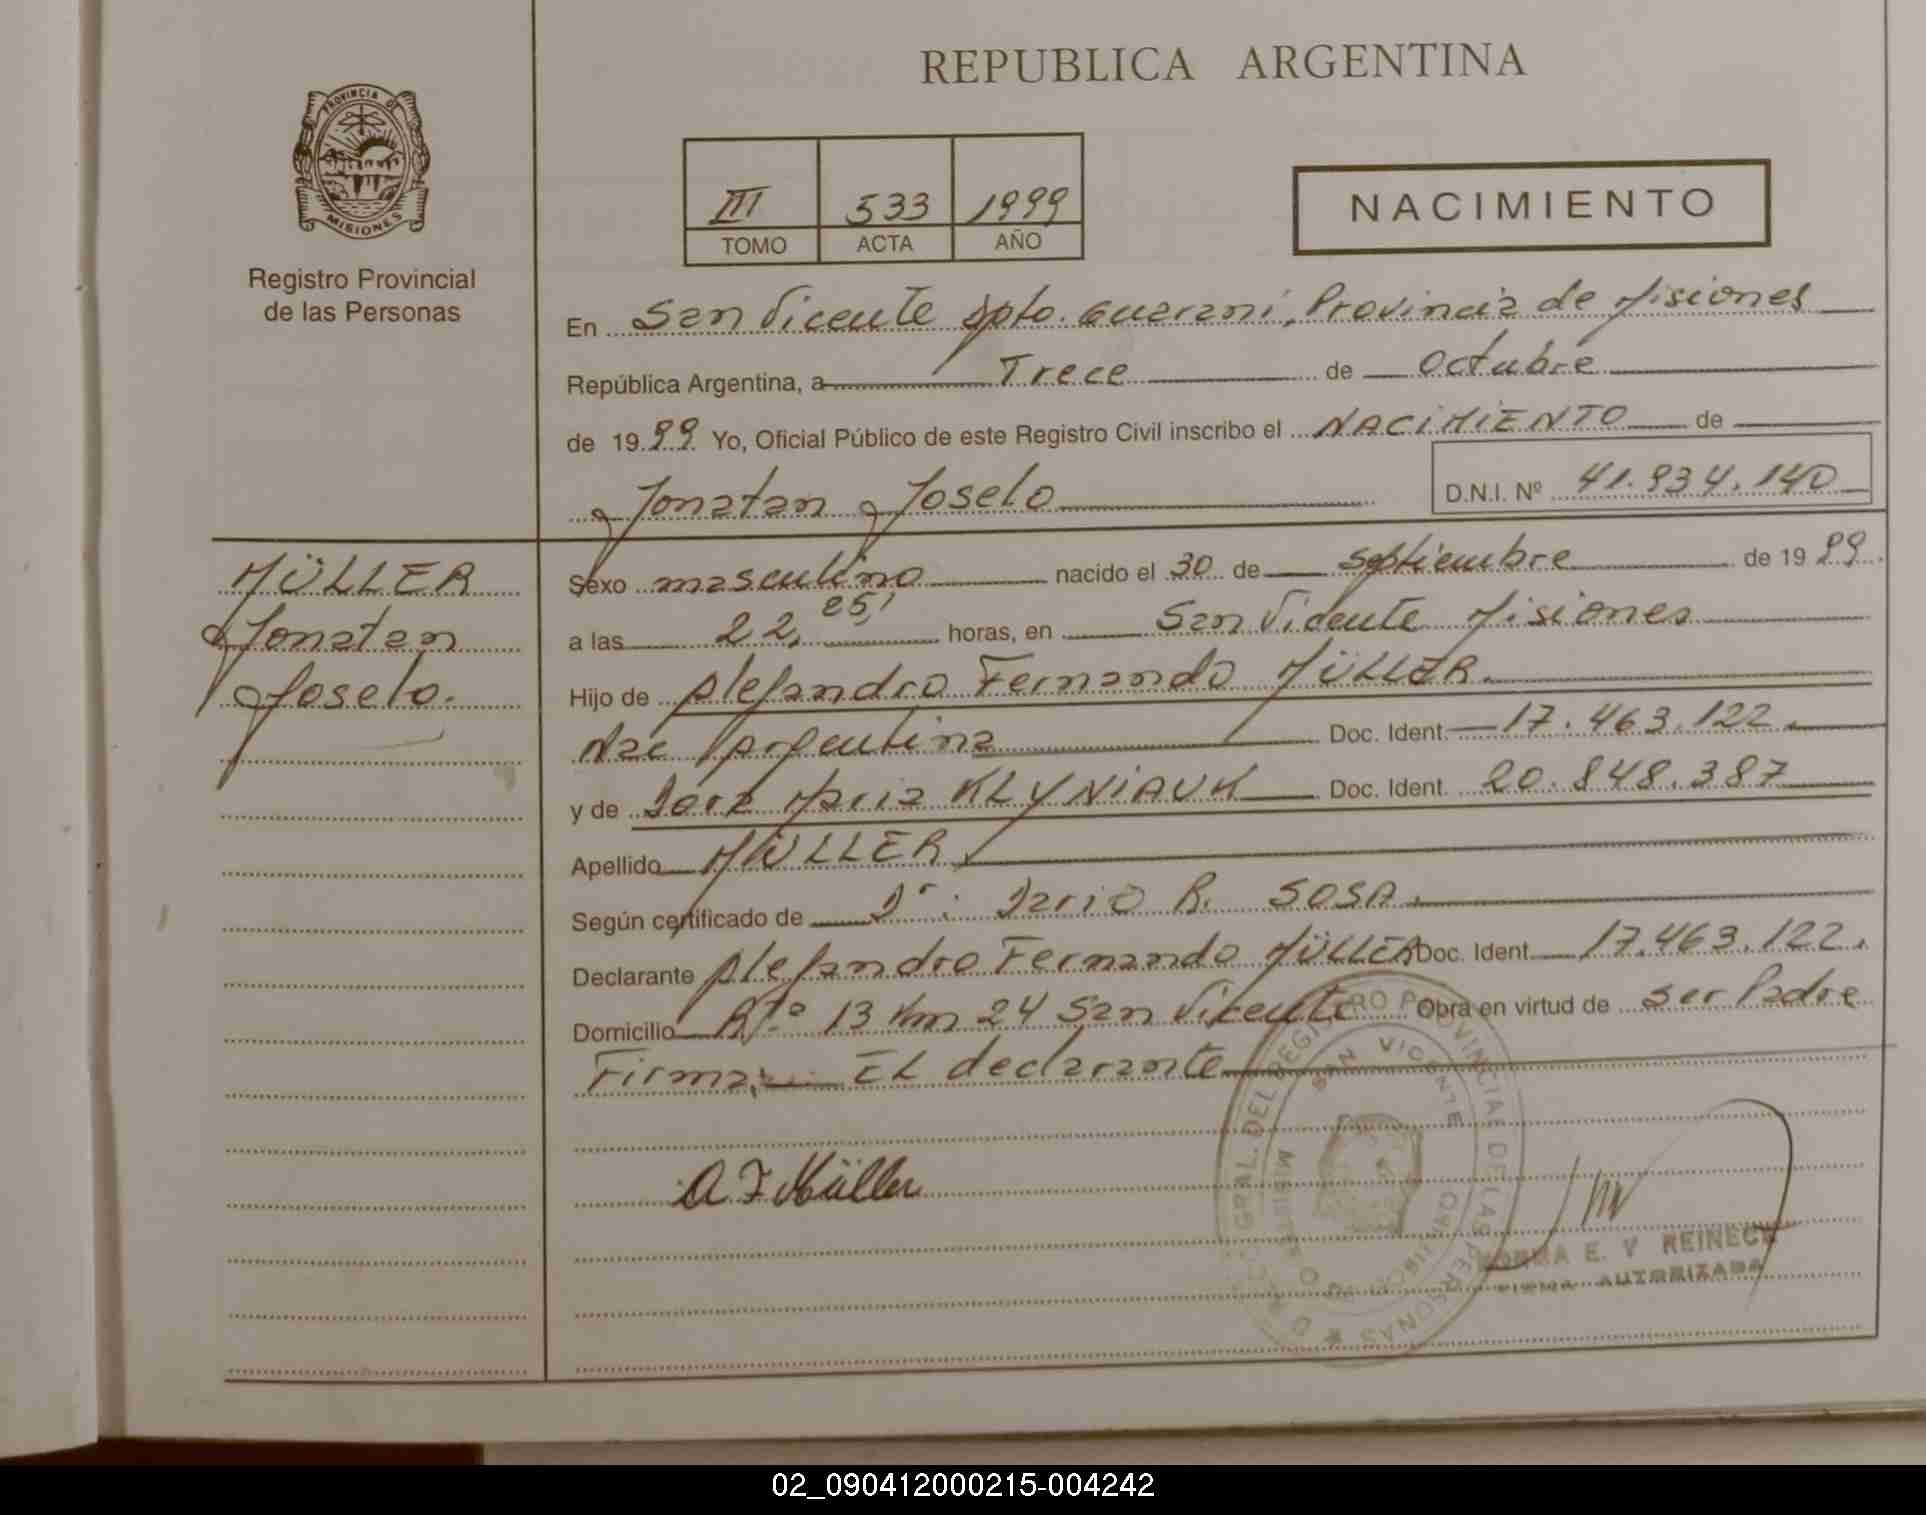 REPUBLICA ARGENTINA
PROVINCIA DE
MISIONES
Registro Provincial
de las Personas
III 533 1999
TOMO ACTA AÑO
NACIMIENTO
En San Vicente Dpto. Guarani, Provincia de Misiones
República Argentina, a Trece de Octubre
de 1999 Yo, Oficial Público de este Registro Civil inscribo el NACIMIENTO de
Jonatan Joselo
D.N.I. Nº 41.934.140
MÜLLER
Jonatan
Joselo.
Sexo masculino nacido el 30 de septiembre de 1999.
a las 22,25' horas, en San Vicente Misiones
Hijo de Alejandro Fernando MÜLLER.
Nac Argentina Doc. Ident. 17.463.122.
y de Maria KLYNIAUK Doc. Ident. 20.848.387
Apellido MÜLLER
Según certificado de Dr: Dario R. SOSA.
Declarante Alejandro Fernando MÜLLER Doc. Ident. 17.463.122.
Domicilio Rta 13 Km 24 San Vicente Obra en virtud de ser Padre
Firma: EL declarante
A F Müller
GRAL. DEL REGISTRO PROVINCIAL DE LAS PERSONAS
SAN VICENTE
MISIONES
NORMA E. V REINECK
FIRMA AUTORIZADA
02_090412000215-004242